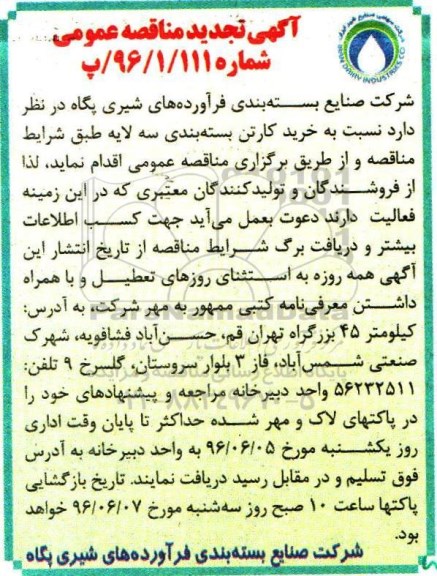 آگهی تجدید مناقصه عمومی
شماره ۹۶/۱/۱۱۱/پ
شرکت سهامی صنایع شیر ایران
IRAN DAIRY INDUSTRIES CO.
شرکت صنایع بسته‌بندی فرآورده‌های شیری پگاه در نظر
دارد نسبت به خرید کارتن بسته‌بندی سه لایه طبق شرایط
مناقصه و از طریق برگزاری مناقصه عمومی اقدام نماید، لذا
از فروشندگان و تولیدکنندگان معتبری که در این زمینه
فعالیت دارند دعوت بعمل می‌آید جهت کسب اطلاعات
بیشتر و دریافت برگ شرایط مناقصه از تاریخ انتشار این
آگهی همه روزه به استثنای روزهای تعطیل و با همراه
داشتن معرفی‌نامه کتبی ممهور به مهر شرکت، به آدرس:
کیلومتر ۴۵ بزرگراه تهران قم، حسن‌آباد فشافویه، شهرک
صنعتی شمس‌آباد، فاز ۳ بلوار سروستان، گلسرخ ۹ تلفن:
۵۶۲۳۲۵۱۱ واحد دبیرخانه مراجعه و پیشنهادهای خود را
در پاکتهای لاک و مهر شده حداکثر تا پایان وقت اداری
روز یکشنبه مورخ ۹۶/۰۶/۰۵ به واحد دبیرخانه به آدرس
فوق تسلیم و در مقابل رسید دریافت نمایند. تاریخ بازگشایی
پاکتها ساعت ۱۰ صبح روز سه‌شنبه مورخ ۹۶/۰۶/۰۷ خواهد
بود.
شرکت صنایع بسته‌بندی فرآورده‌های شیری پگاه